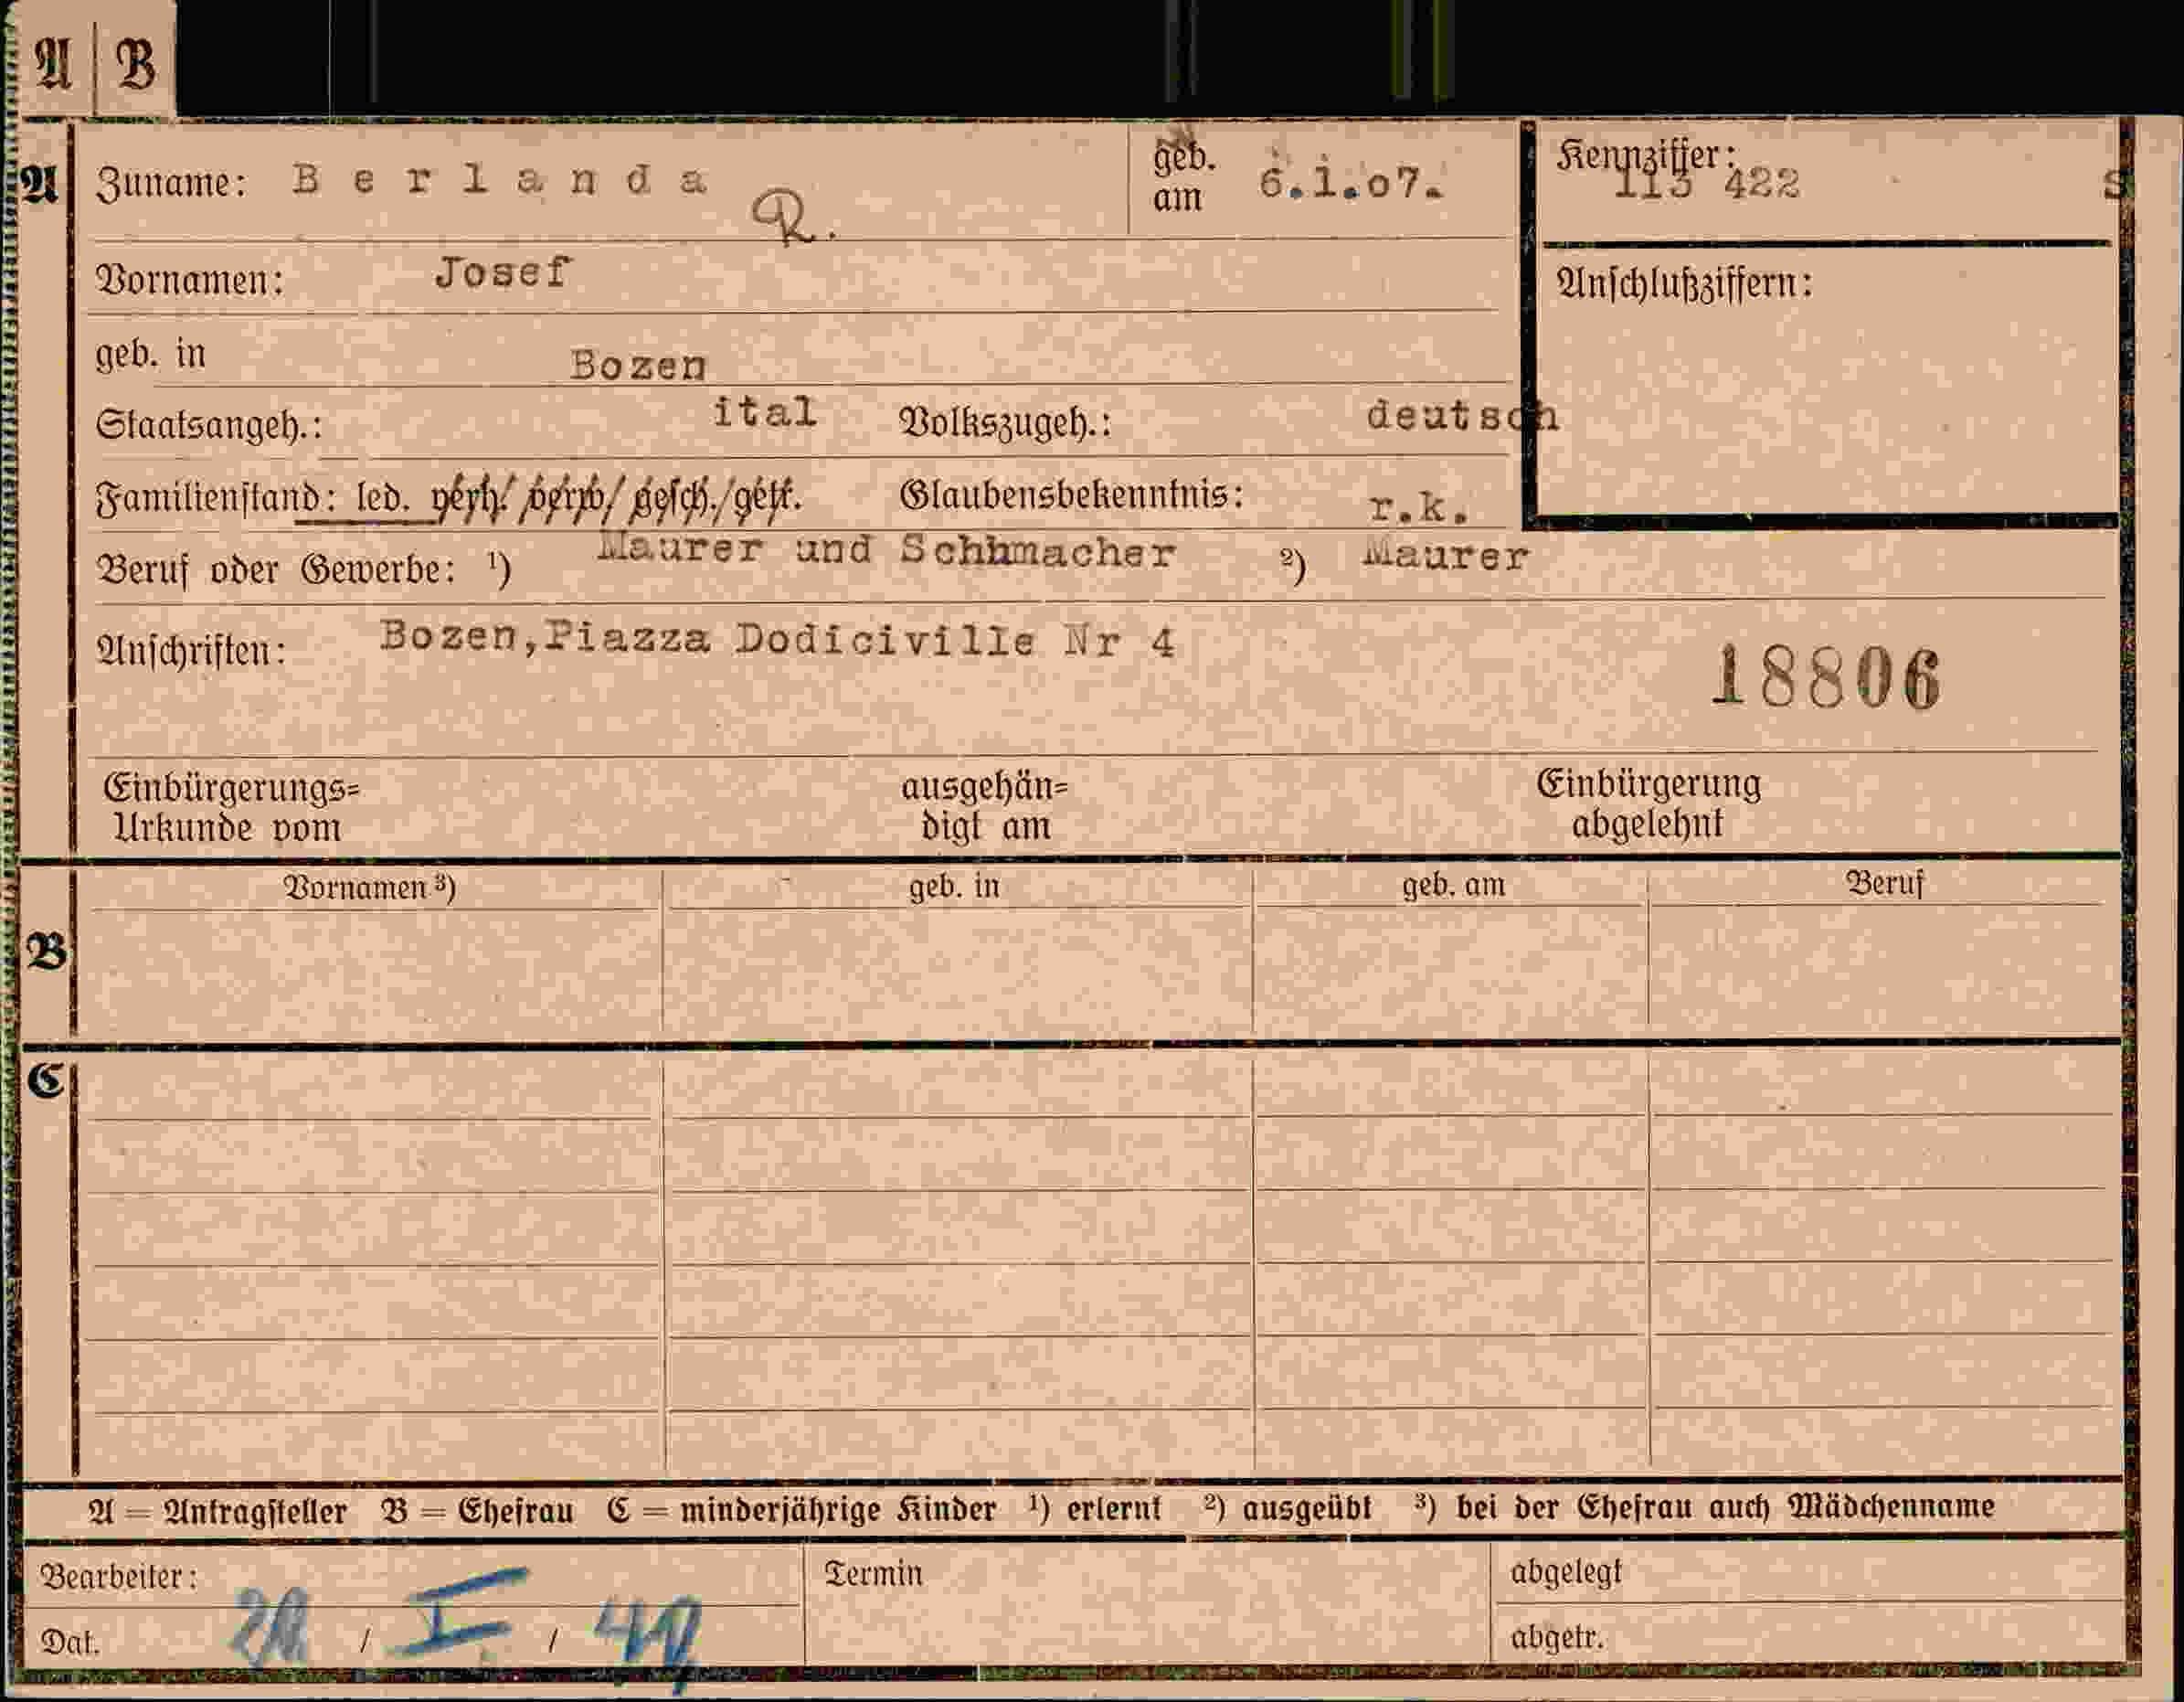 A | B
A Zuname: Berlanda R. geb. am 6.1.07. Kennziffer: 113 422 S
Vornamen: Josef Anschlußziffern:
geb. in Bozen
Staatsangeh.: ital Volkszugeh.: deutsch
Familienstand: led. verh./ verw/ gesch./getr. Glaubensbekenntnis: r.k.
Beruf oder Gewerbe: ¹) Maurer und Schhmacher ²) Maurer
Anschriften: Bozen,Piazza Dodiciville Nr 4
18806
Einbürgerungs= ausgehän= Einbürgerung
Urkunde vom digt am abgelehnt
Vornamen ³) geb. in geb. am Beruf
B
C
A = Antragsteller B = Ehefrau C = minderjährige Kinder ¹) erlernt ²) ausgeübt ³) bei der Ehefrau auch Mädchenname
Bearbeiter: Termin abgelegt
Dat. / I. / abgetr.